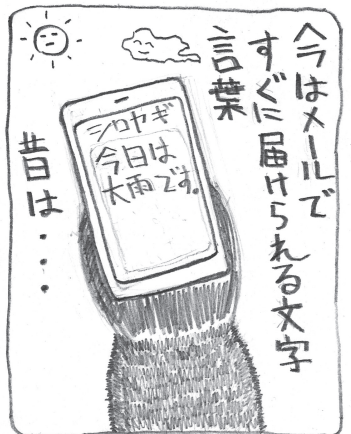 今はメールで
すぐに届けられる文字
言葉
シロヤギ
今日は
大雨です。
昔は・・・